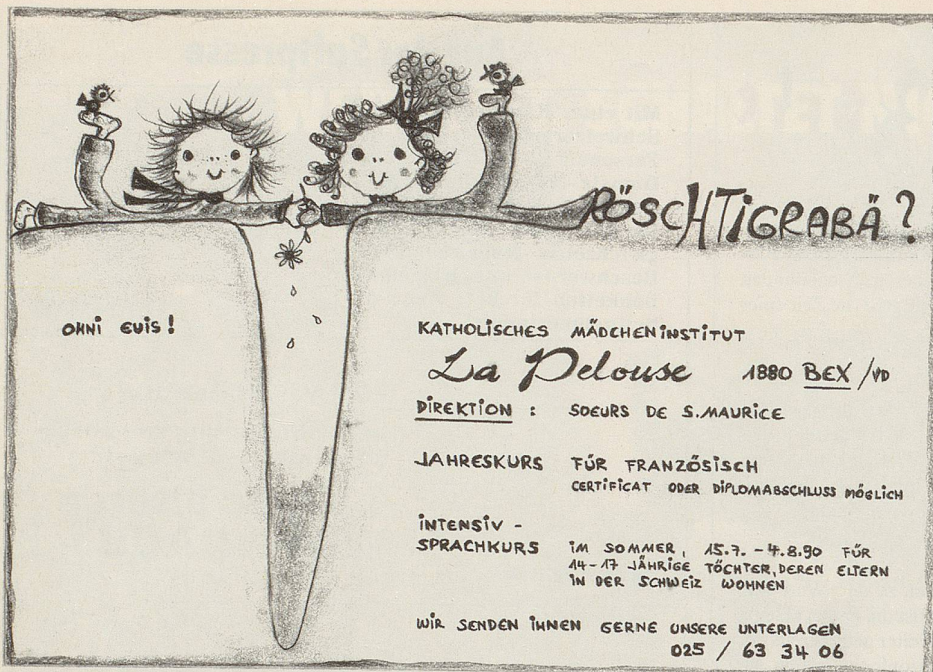 RÖSCHTIGRABÄ?
OHNI EUIS!
KATHOLISCHES MÄDCHENINSTITUT
La Pelouse 1880 BEX/VD
DIREKTION : SOEURS DE S.MAURICE
JAHRESKURS FÜR FRANZÖSISCH
CERTIFICAT ODER DIPLOMABSCHLUSS MÖGLICH
INTENSIV-
SPRACHKURS IM SOMMER, 15.7. - 4.8.90 FÜR
14-17 JÄHRIGE TÖCHTER, DEREN ELTERN
IN DER SCHWEIZ WOHNEN
WIR SENDEN IHNEN GERNE UNSERE UNTERLAGEN
025 / 63 34 06